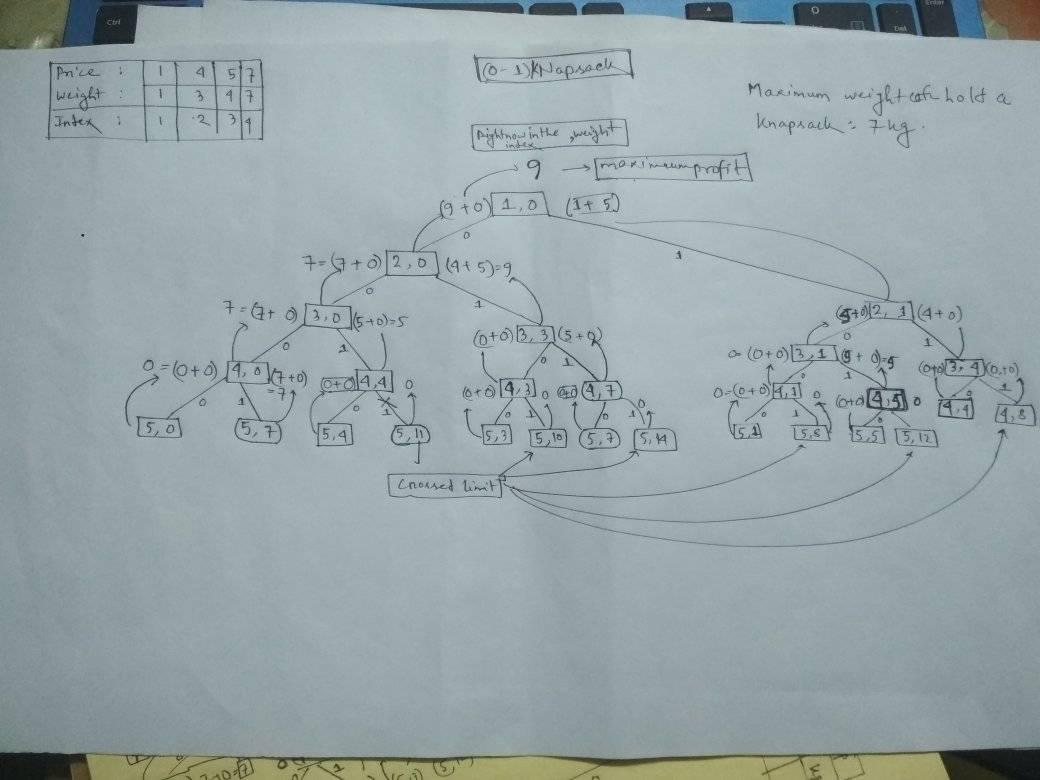 Ctrl
Enter
Del
Price : 1 4 5 7
Weight : 1 3 4 7
Index : 1 2 3 4
(0-1)KNapsack
Maximum weight hold a
Knapsack: 7kg.
Right now in the , weight
index
9 → maximum profit
(9+0) 1,0 (1+5)
0 1
7=(7+0) 2,0 (4+5)=9
0 1
7=(7+0) 3,0 (5+0)=5
(0+0) 3,3 (5+0)
(5+0) 2,1 (4+0)
0 1 0 1 0 1
0=(0+0) 4,0 (7+0)
=7
(0+0) 4,4 0
(0+0) 4,3 0
(0+0) 4,7 0
0=(0+0) 3,1 (5+0)=5
(0+0) 3,4 (0+0)
0=(0+0) 4,1 0
(0+0) 4,5 0
4,4 4,8
5,0 5,7 5,4 5,11 5,3 5,10 5,7 5,14 5,1 5,8 5,5 5,12
Crossed limit